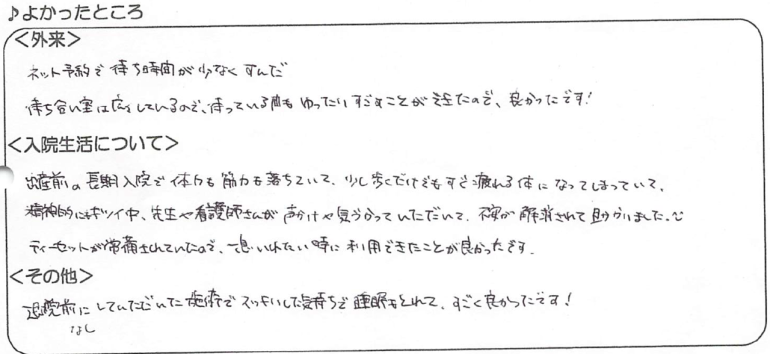 ♪よかったところ
<外来>
ネット予約で待ち時間が少なくすんだ
待ち合い室は広々しているので、待っている間もゆったりすごすことができたので、良かったです!
<入院生活について>
出産前の長期入院で体力も筋力も落ちていて、少し歩くだけでもすぐ疲れる体になってしまっていて、
精神的にもキツイ中、先生や看護師さんが声かけや気づかっていただいて、不安が解消されて助かりました。
ティーセットが常備されていたので、一息いれたい時に利用できたことが良かったです。
<その他>
退院前にしていただいた施術でスッキリした気持ちで睡眠もとれて、すごく良かったです!
なし